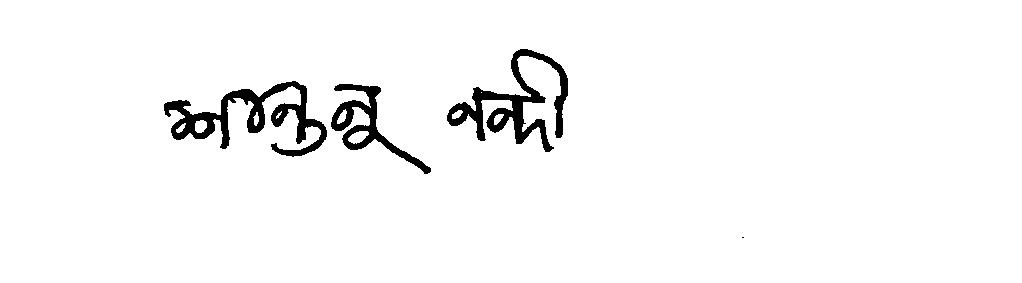 শান্তুনু নন্দী